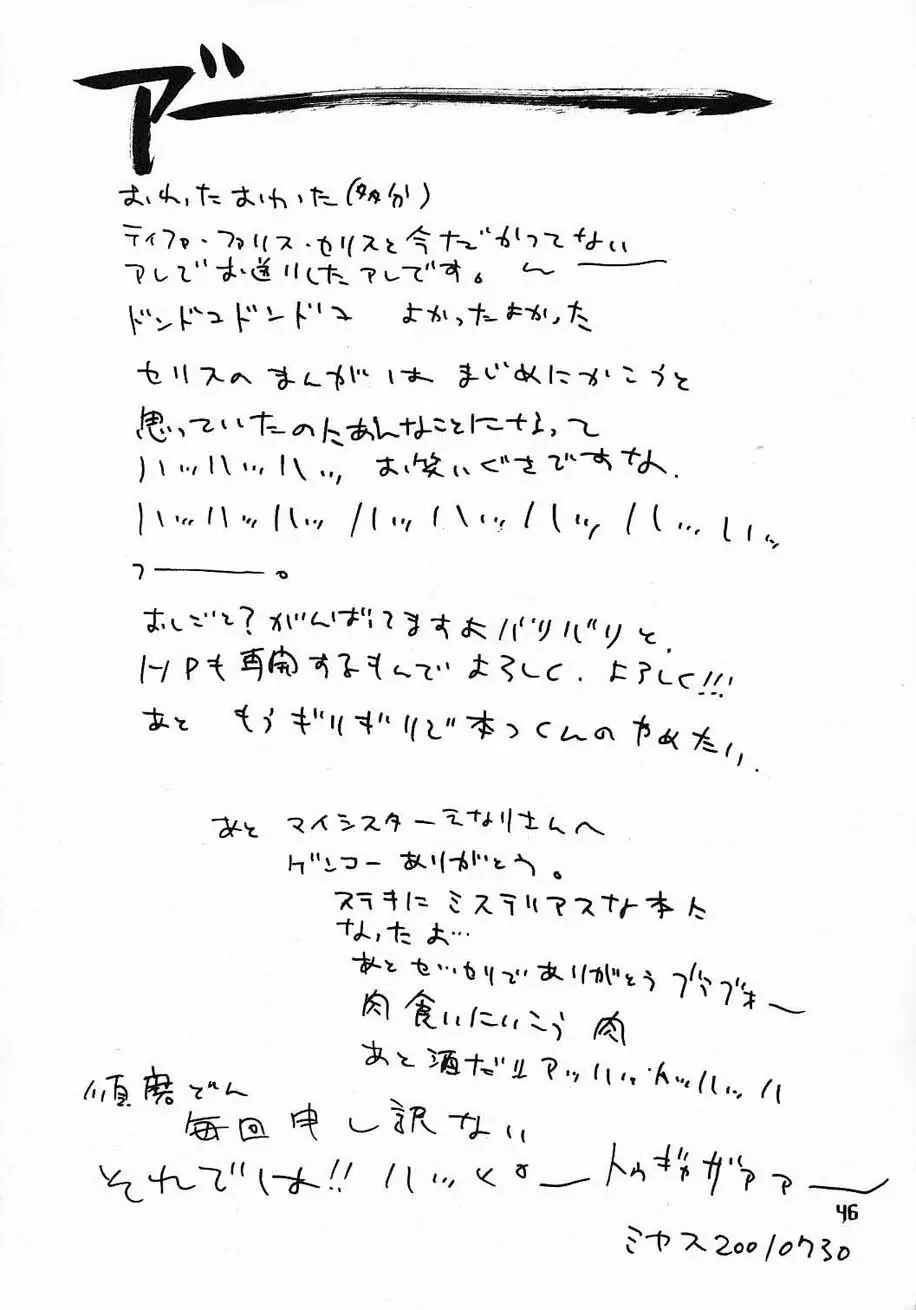 ア゛ー
おわったおわった(多分)
ティファ・ファリス・セリスと今だかつてない
アレでお送りしたアレです。
ドンドコドンドコ よかったよかった
セリスのまんがは まじめにかこうと
思っていたのにあんなことになって
ハッハッハッ お笑いぐさですな.
ハッハッハッハッハッハッハッハッ
フー。
おしごと?がんばってますよバリバリと.
HPも再開するもんでよろしく.よろしく!!!
あと もうギリギリで本つくんのやめたい.
あと マイシスターえなりさんへ
ゲンコーありがとう。
ステキにミステリアスな本に
なったよ…
あと ありがとう
肉食いにいこう 肉
あと酒だ!! アッハッハッハッハ
順磨どん
毎回申し訳ない
それでは!! ハッピーートゥギャザァァー
46
ミヤス20010730